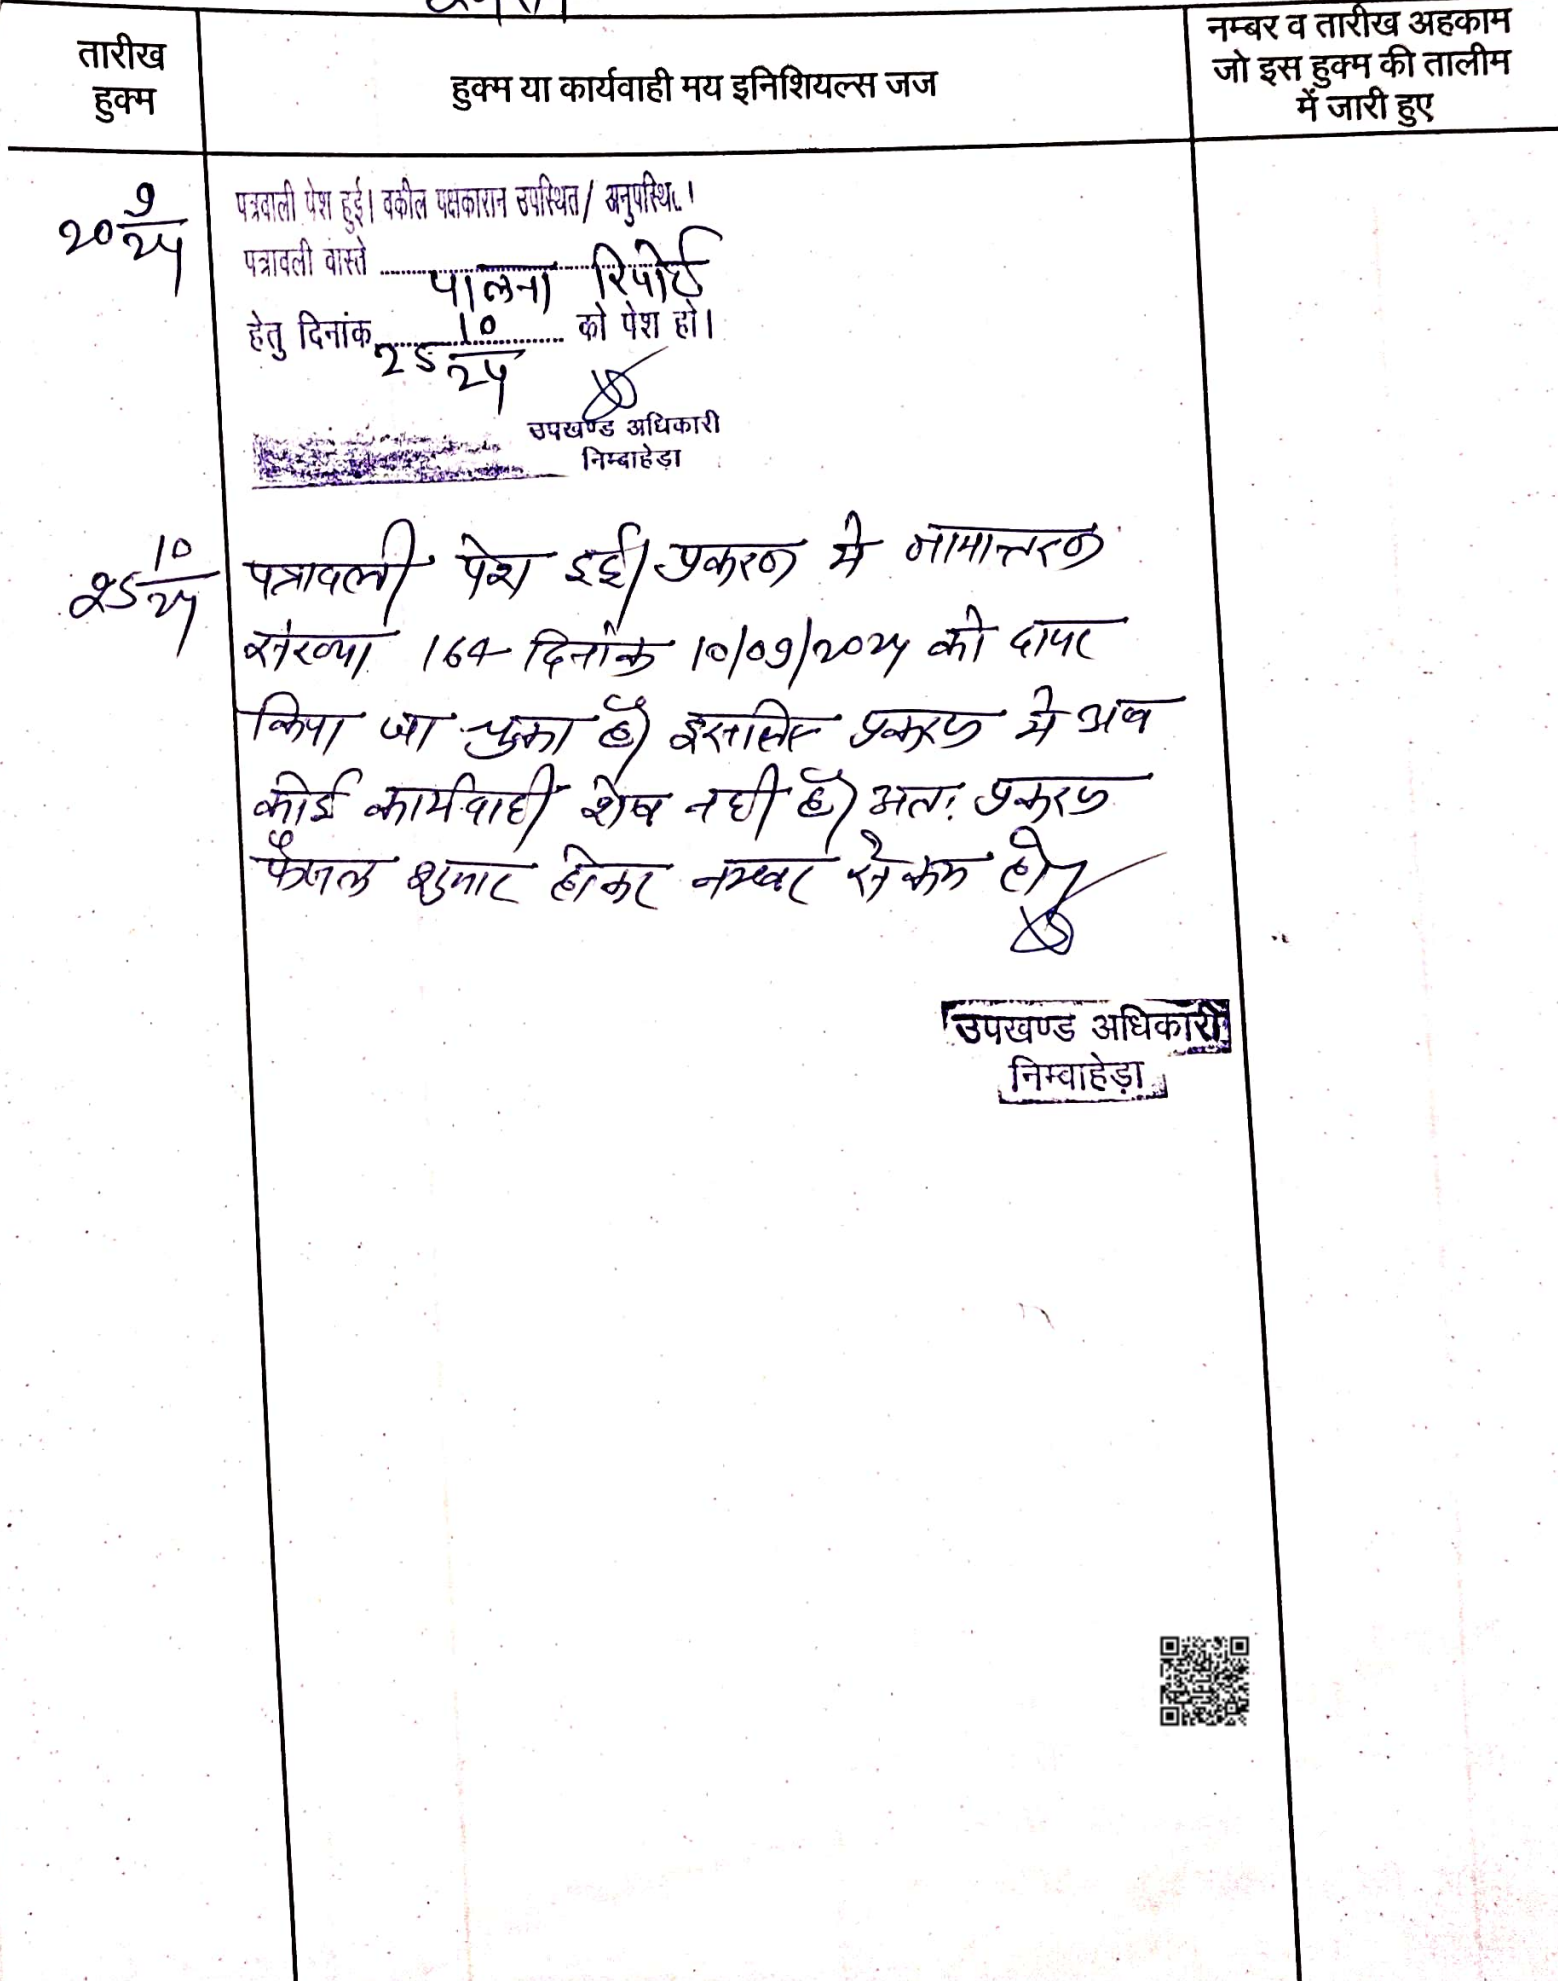 तारीख
हुक्म
हुक्म या कार्यवाही मय इनिशियल्स जज
नम्बर व तारीख अहकाम
जो इस हुक्म की तालीम
में जारी हुए
20 9/24
पत्रवाली पेश हुई। वकील पक्षकारान उपस्थित / अनुपस्थित।
पत्रावली वास्ते पालना रिपोर्ट
हेतु दिनांक 25 10/24 को पेश हो।
उपखण्ड अधिकारी
निम्बाहेड़ा
25 10/24
पत्रावली पेश हुई। प्रकरण मे नामान्तरण
संख्या 164 दिनांक 10/09/2024 को दायर
किया जा चुका है। इसलिए प्रकरण मे अब
कोई कार्यवाही शेष नही है। अतः प्रकरण
फैसल शुमार होकर नम्बर से कम हो।
उपखण्ड अधिकारी
निम्बाहेड़ा